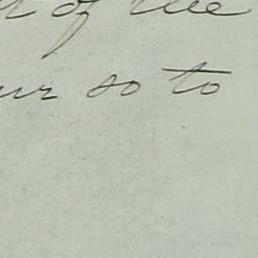 of the
so to